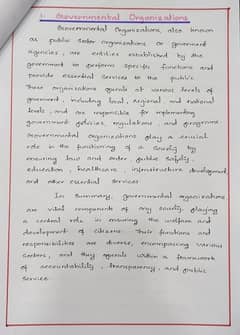 Governmental Organizations
Governmental Organizations, also known
as public sector organizations or government
agencies, are entities established by the
government to perform specific functions and
provide essential services to the public.
These organizations operate at various levels of
government, including local, regional and national
levels, and are responsible for implementing
government policies, regulations, and programs.
Governmental organizations play a crucial
role in the functioning of a society by
ensuring law and order, public safety,
education, healthcare, infrastructure development,
and other essential services.
In summary, governmental organizations
are vital components of any society, playing
a central role in ensuring the welfare and
development of citizens. Their functions and
responsibilities are diverse, encompassing various
sectors, and they operate within a framework
of accountability, transparency, and public
service.